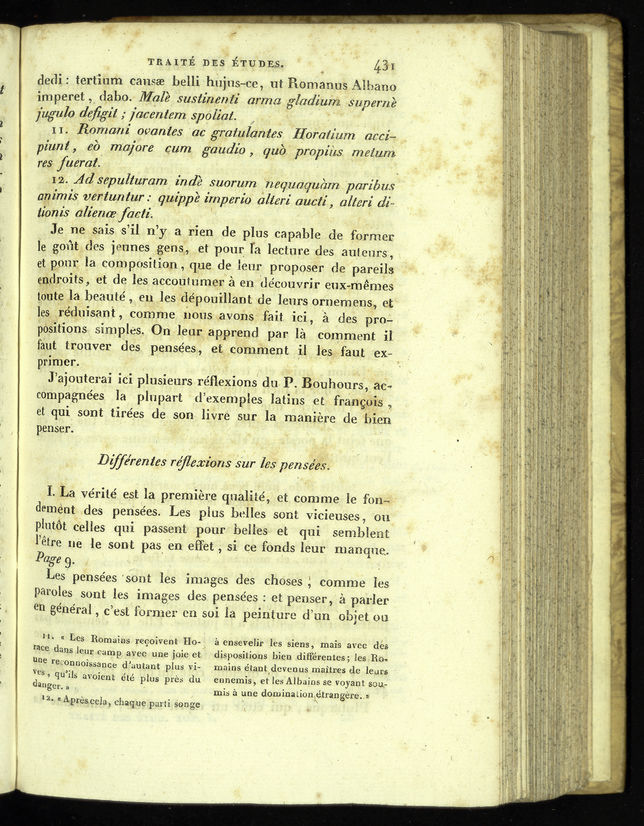 TRAITÉ DES ÉTUDES. 431
dedi : tertium causæ belli hujus-ce, ut Romanus Albano
imperet, dabo. Malè sustinenti arma gladium supernè
jugulo defigit ; jacentem spoliat.
11. Romani ovantes ac gratulantes Horatium acci-
piunt, eò majore cum gaudio, quò propiùs metum
res fuerat.
12. Ad sepulturam indè suorum nequaquàm paribus
animis vertuntur : quippè imperio alteri aucti, alteri di-
tionis alienæ facti.
Je ne sais s'il n'y a rien de plus capable de former
le goût des jeunes gens, et pour la lecture des auteurs,
et pour la composition, que de leur proposer de pareils
endroits, et de les accoutumer à en découvrir eux-mêmes
toute la beauté, en les dépouillant de leurs ornemens, et
les réduisant, comme nous avons fait ici, à des pro-
positions simples. On leur apprend par là comment il
faut trouver des pensées, et comment il les faut ex-
primer.
J'ajouterai ici plusieurs réflexions du P. Bouhours, ac-
compagnées la plupart d'exemples latins et françois,
et qui sont tirées de son livre sur la manière de bien
penser.
Différentes réflexions sur les pensées.
I. La vérité est la première qualité, et comme le fon-
dement des pensées. Les plus belles sont vicieuses, ou
plutôt celles qui passent pour belles et qui semblent
l'être ne le sont pas en effet, si ce fonds leur manque.
Page 9.
Les pensées sont les images des choses, comme les
paroles sont les images des pensées : et penser, à parler
en général, c'est former en soi la peinture d'un objet ou
11. « Les Romains reçoivent Ho-
race dans leur camp avec une joie et
une reconnoissance d'autant plus vi-
ves, qu'ils avoient été plus près du
danger. »
12. « Après cela, chaque parti songe
à ensevelir les siens, mais avec des
dispositions bien différentes ; les Ro-
mains étant devenus maîtres de leurs
ennemis, et les Albains se voyant sou-
mis à une domination étrangère. »